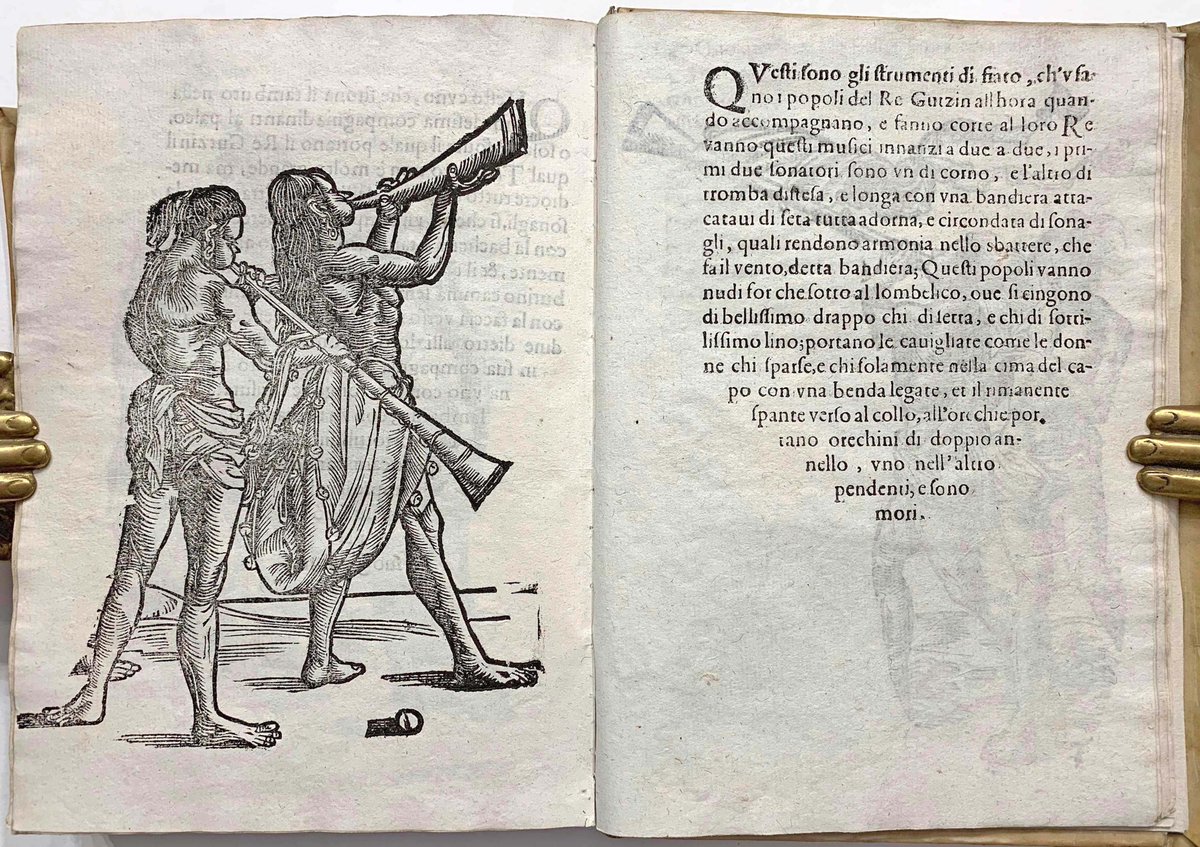 QVesti sono gli strumenti di fiato, ch'vsa-
no i popoli del Re Gutzin all hora quan-
do accompagnano, e fanno corte al loro Re
vanno questi musici innanzi a due a due, i pri-
mi due sonatori sono vn di corno, e l'altro di
tromba distesa, e longa con vna bandiera atta-
cataui di seta tutta adorna, e circondata di sona-
gli, quali rendono armonia nello sbattere, che
fa il vento, detta bandiera; Questi popoli vanno
nudi for che sotto al lombelico, oue si cingono
di bellissimo drappo chi di setta, e chi di sotti-
lissimo lino; portano le cauigliate come le don-
ne chi sparse, e chi solamente nella cima del ca-
po con vna benda legate, et il rimanente
spante verso al collo, all'orecchie por.
tano orechini di doppio an-
nello, vno nell'altro
pendenti, e sono
mori.